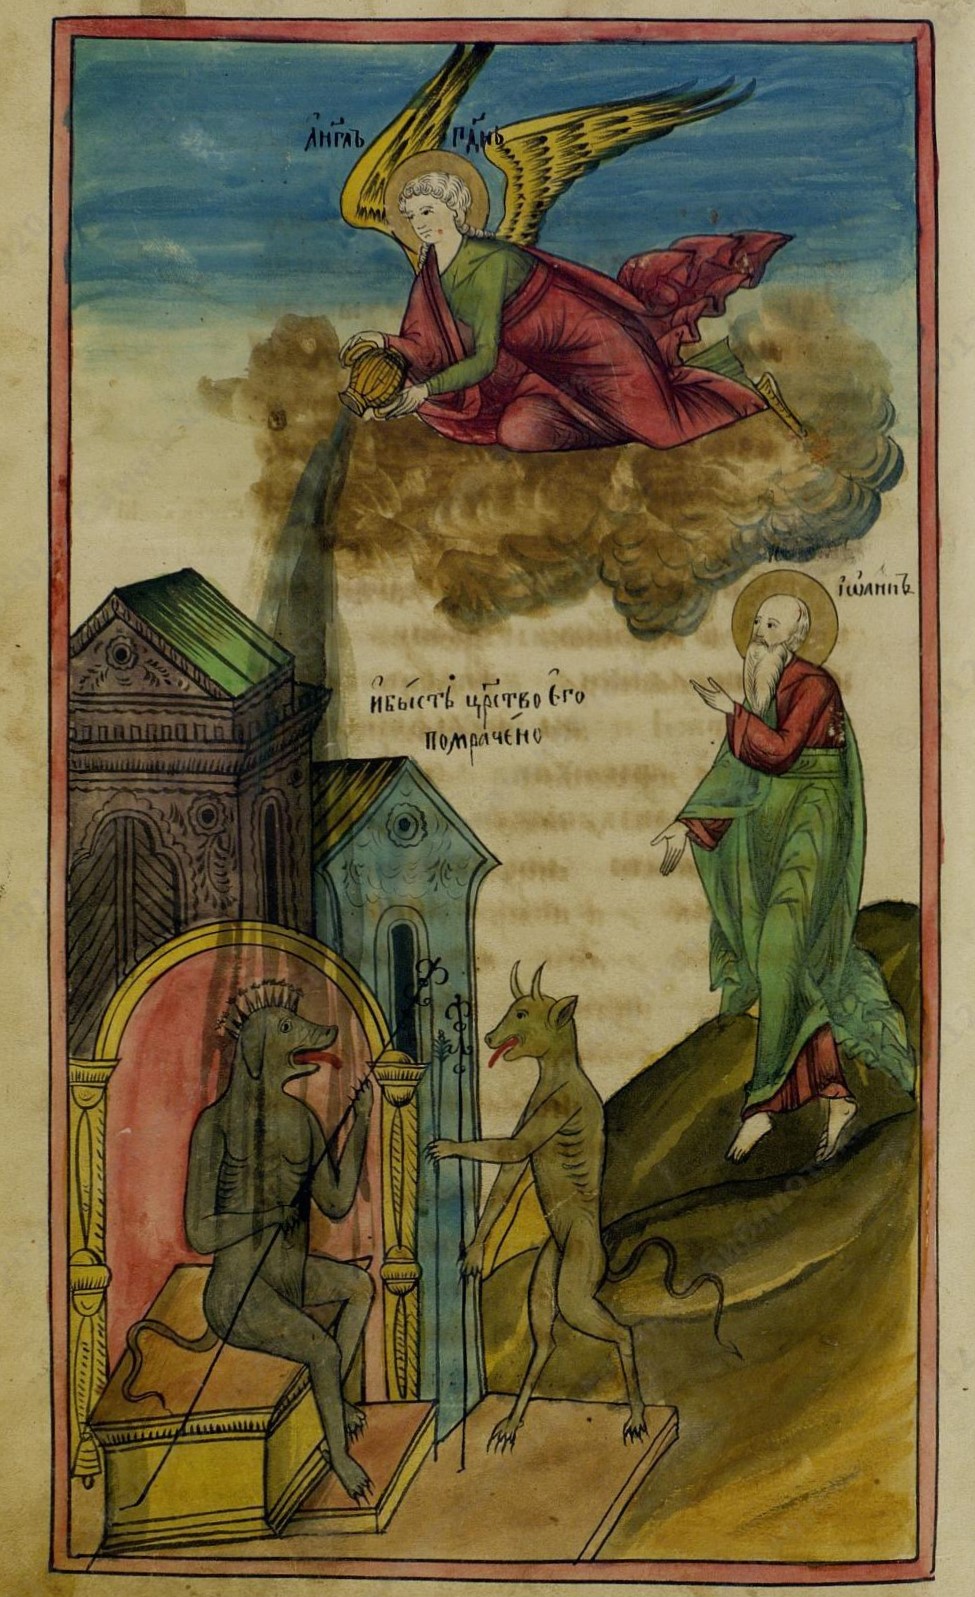 а҆нг҃лъ гд҇нь
і҆ѡаннъ
и҆бы́сть ца҇рство є҆го
помраче́но